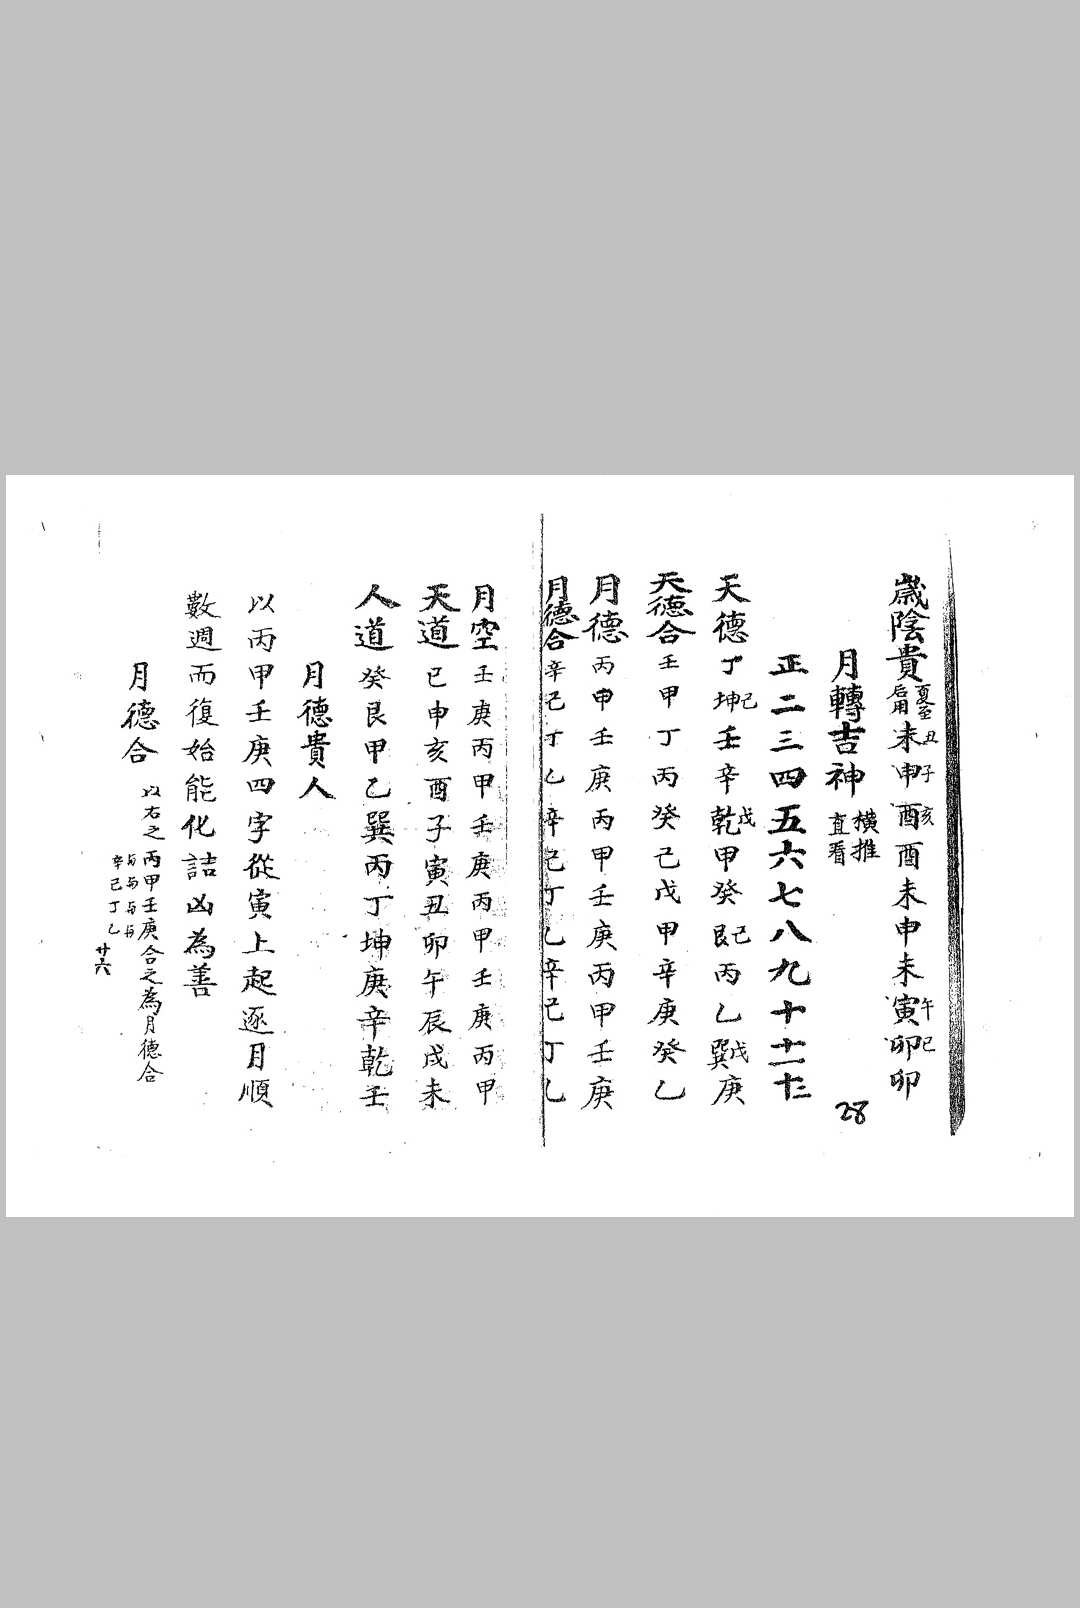 歲陰貴 夏至后用 未申酉酉未申未寅卯卯
丑子亥 午巳
月轉吉神 橫推直看
28
正二三四五六七八九十十一十二
天德 丁坤己壬辛乾戊甲癸艮己丙乙巽戊庚
天德合 壬甲丁丙癸己戊甲辛庚癸乙
月德 丙甲壬庚丙甲壬庚丙甲壬庚
月德合 辛己丁乙辛己丁乙辛己丁乙
月空 壬庚丙甲壬庚丙甲壬庚丙甲
天道 巳申亥酉子寅丑卯午辰戌未
人道 癸艮甲乙巽丙丁坤庚辛乾壬
月德貴人
以丙甲壬庚四字從寅上起逐月順
數週而復始能化詰凶為善
月德合 以右之丙甲壬庚合之為月德合
与与与与
辛己丁乙
廿六